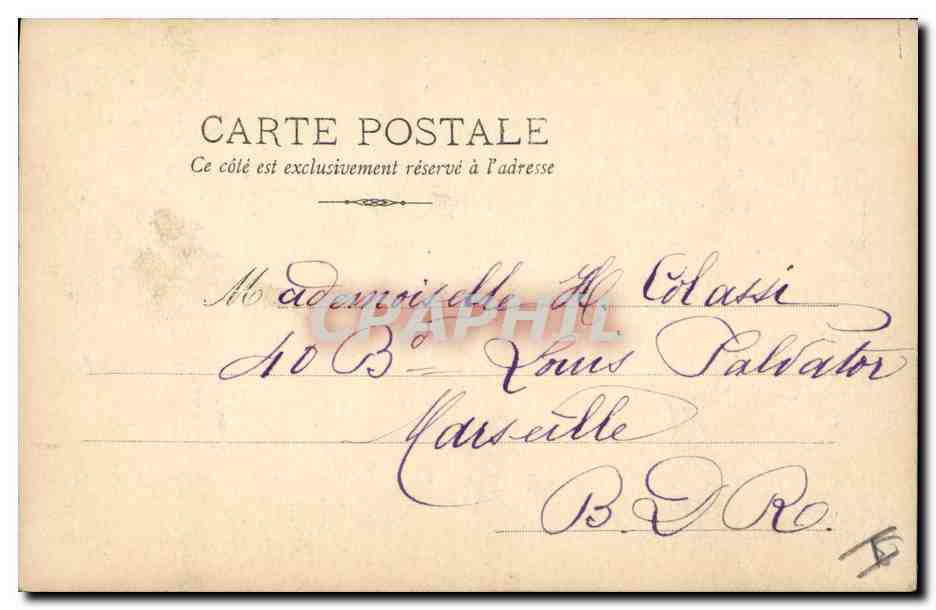 CARTE POSTALE
Ce côté est exclusivement réservé à l'adresse
Mademoiselle H. Colassi
CPAPHIL
40 Bd Louis Salvator
Marseille
B. D R.